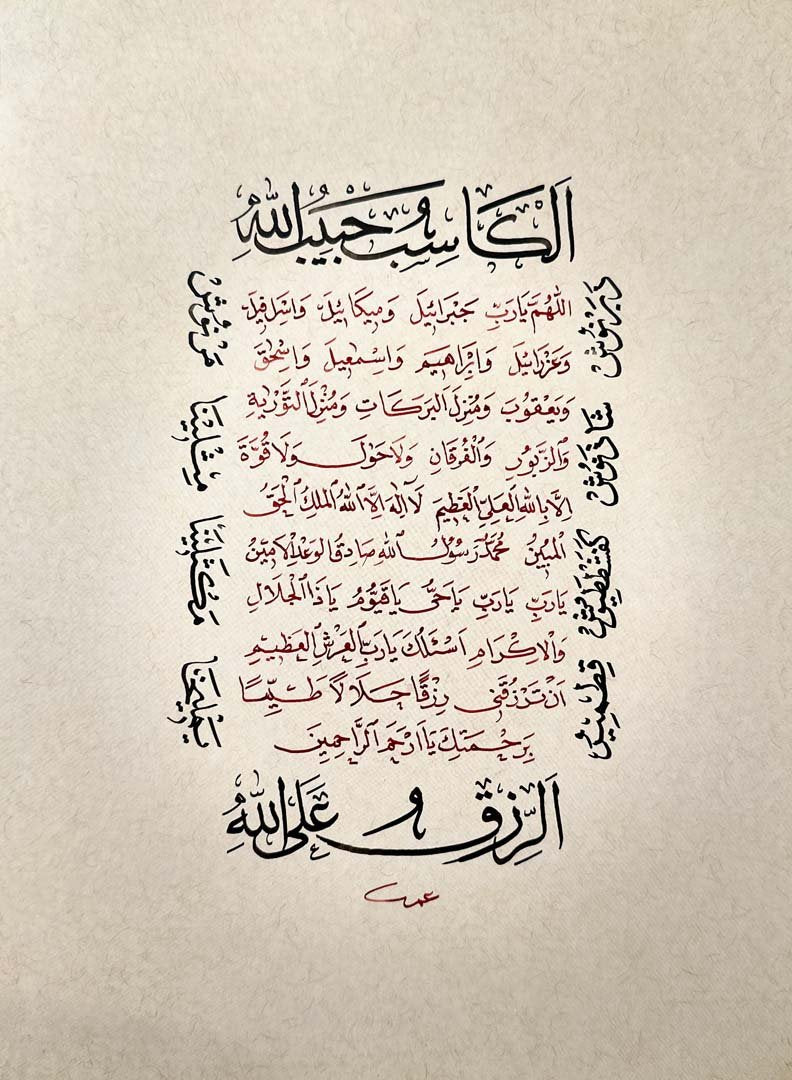 اَلْكَاسِبُ حَبِيبُ اللهِ
اَللّٰهُمَّ يَارَبِّ جَبْرَائِيلَ وَمِيكَائِيلَ وَاِسْرَافِيلَ
وَعَزْرَائِيلَ وَاِبْرَاهِيمَ وَاِسْمٰعِيلَ وَاِسْحٰقَ
وَيَعْقُوبَ وَمُنْزِلَ الْبَرَكَاتِ وَمُنْزِلَ التَّوْرٰيةِ
وَالزَّبُورِ وَالْفُرْقَانِ وَلَا حَوْلَ وَلَا قُوَّةَ
اِلَّا بِاللهِ الْعَلِيِّ الْعَظِيمِ لَٓا اِلٰهَ اِلَّا اللهُ الْمَلِكُ الْحَقُّ
الْمُبِينُ مُحَمَّدٌ رَسُولُ اللهِ صَادِقُ الْوَعْدِ الْاَمِينُ
يَارَبِّ يَارَبِّ يَاحَيُّ يَاقَيُّومُ يَا ذَا الْجَلَالِ
وَالْاِكْرَامِ اَسْئَلُكَ يَارَبَّ الْعَرْشِ الْعَظِيمِ
اَنْ تَرْزُقَنِي رِزْقًا حَلَالًا طَيِّبًا
بِرَحْمَتِكَ يَا اَرْحَمَ الرَّاحِمِينَ
اَلرِّزْقُ عَلَى اللهِ
دَبَرْنُوشْ
شَاذَنُوشْ
كَفَشْطَطَيُوشْ
قِطْمِيرْ
مَرْنُوشْ
مَثْلِينَا
مَكْثَلِينَا
يَمْلِيخَا